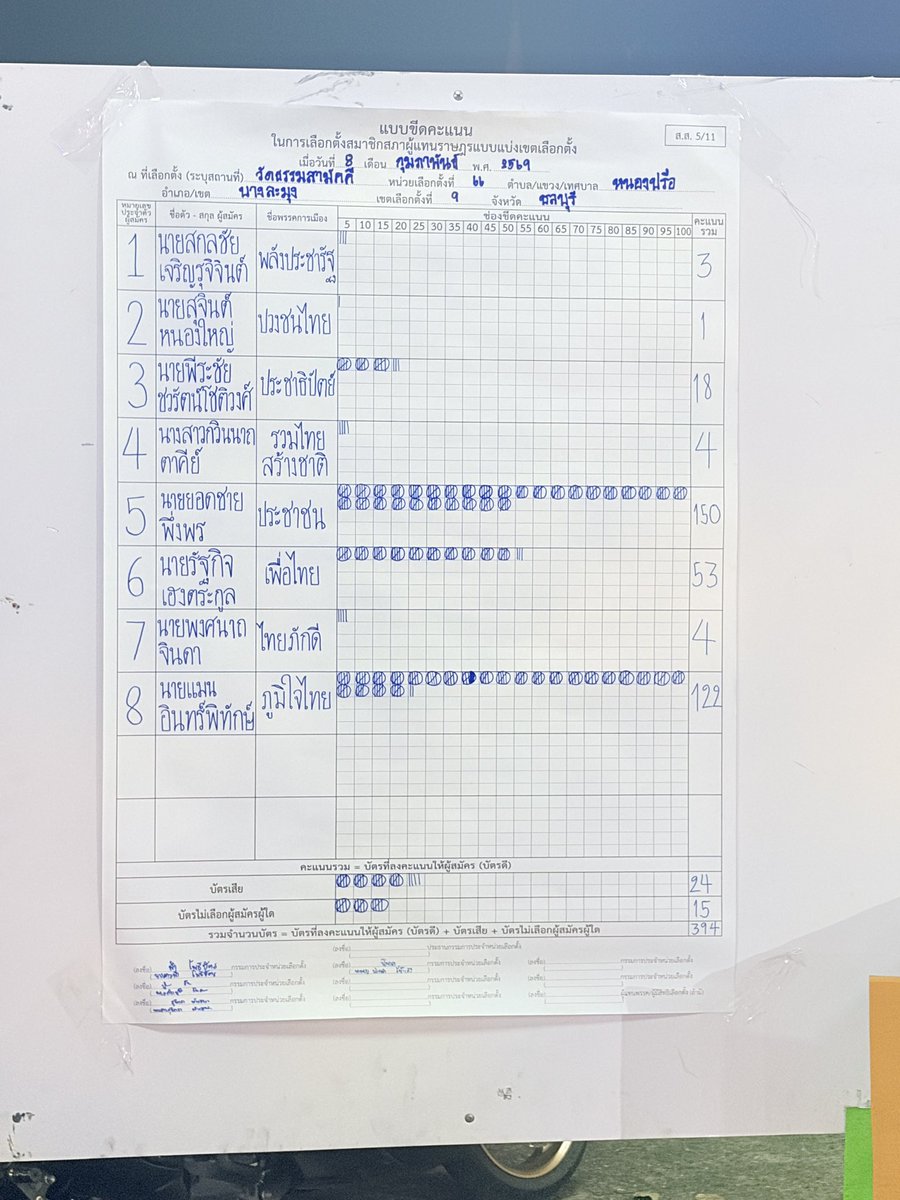 ส.ส. 5/11
แบบขีดคะแนน
ในการเลือกตั้งสมาชิกสภาผู้แทนราษฎรแบบแบ่งเขตเลือกตั้ง
เมื่อวันที่ 8 เดือน กุมภาพันธ์ พ.ศ. 2569
ณ ที่เลือกตั้ง (ระบุสถานที่) วัดธรรมสามัคคี หน่วยเลือกตั้งที่ 66 ตำบล/แขวง/เทศบาล หนองปรือ
อำเภอ/เขต บางละมุง เขตเลือกตั้งที่ 9 จังหวัด ชลบุรี
หมายเลขประจำตัวผู้สมัคร ชื่อตัว - สกุล ผู้สมัคร ชื่อพรรคการเมือง ช่องขีดคะแนน คะแนนรวม
5 10 15 20 25 30 35 40 45 50 55 60 65 70 75 80 85 90 95 100
1 นายสกลชัย เจริญรุจิจินต์ พลังประชารัฐ 3
2 นายสุจินต์ หนองใหญ่ ปวงชนไทย 1
3 นายพีระชัย ชวรัตน์โชติวงศ์ ประชาธิปัตย์ 18
4 นางสาวกวินนาถ ตาคีย์ รวมไทยสร้างชาติ 4
5 นายยอดชาย พึ่งพร ประชาชน 150
6 นายรัฐกิจ เฮงตระกูล เพื่อไทย 53
7 นายพงศนาถ จินดา ไทยภักดี 4
8 นายแมน อินทร์พิทักษ์ ภูมิใจไทย 122
คะแนนรวม = บัตรที่ลงคะแนนให้ผู้สมัคร (บัตรดี)
บัตรเสีย 24
บัตรไม่เลือกผู้สมัครผู้ใด 15
รวมจำนวนบัตร = บัตรที่ลงคะแนนให้ผู้สมัคร (บัตรดี) + บัตรเสีย + บัตรไม่เลือกผู้สมัครผู้ใด 394
(ลงชื่อ) ประธานกรรมการประจำหน่วยเลือกตั้ง
(ลงชื่อ) กรรมการประจำหน่วยเลือกตั้ง (ลงชื่อ) กรรมการประจำหน่วยเลือกตั้ง (ลงชื่อ) กรรมการประจำหน่วยเลือกตั้ง
(ลงชื่อ) กรรมการประจำหน่วยเลือกตั้ง (ลงชื่อ) กรรมการประจำหน่วยเลือกตั้ง (ลงชื่อ) กรรมการประจำหน่วยเลือกตั้ง
(ลงชื่อ) กรรมการประจำหน่วยเลือกตั้ง (ลงชื่อ) กรรมการประจำหน่วยเลือกตั้ง (ลงชื่อ)